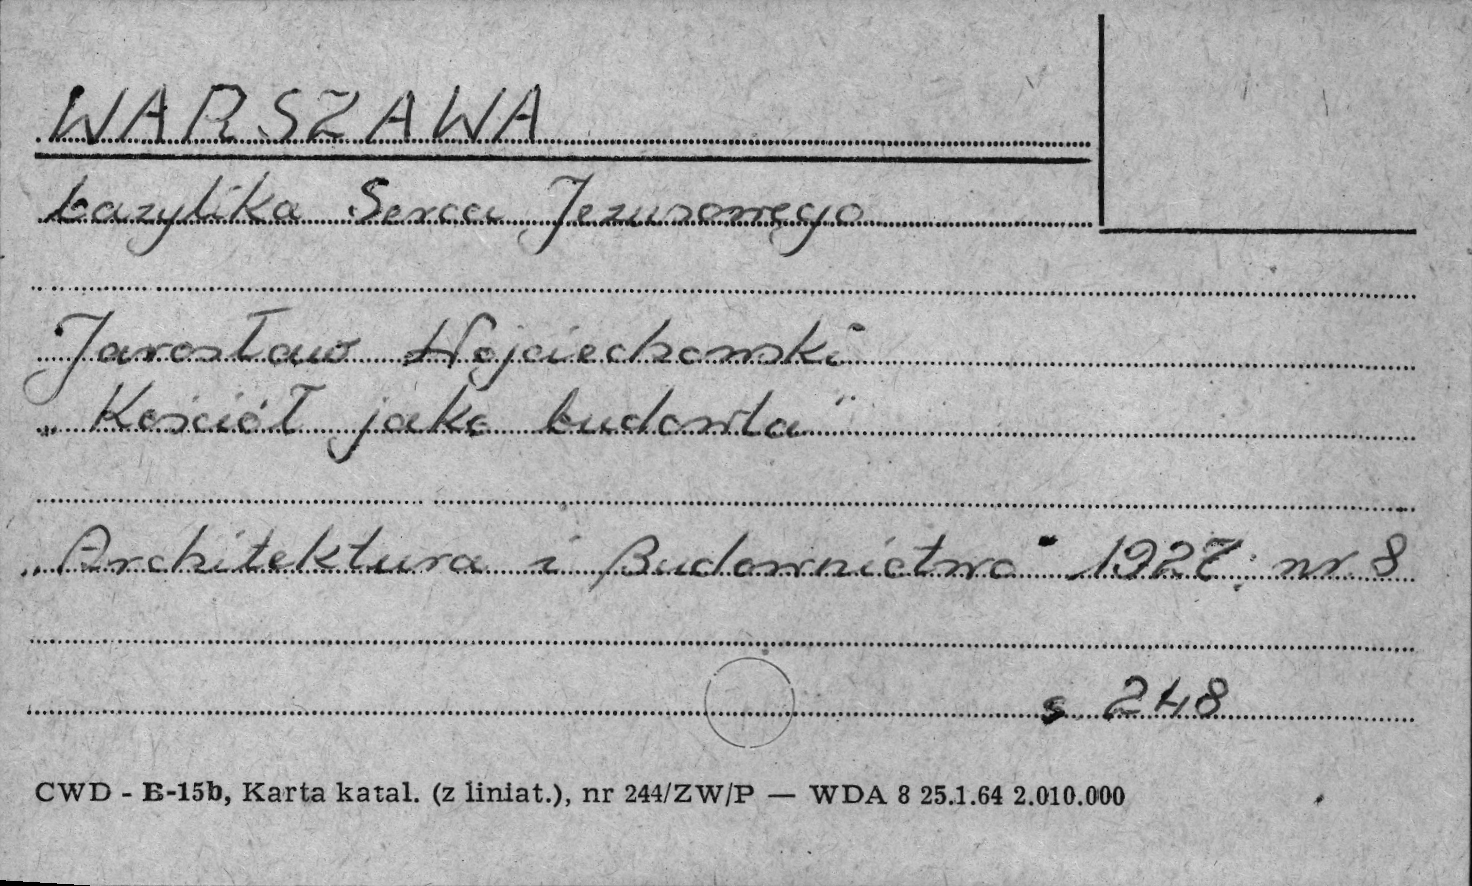 WARSZAWA
bazylika Serca Jezusowego
Jarosław Wojciechowski
„Kościół jako budowla"
„Architektura i Budownictwo" 1927, nr 8
s 248
CWD - B-15b, Karta katal. (z liniat.), nr 244/ZW/P — WDA 8 25.1.64 2.010.000